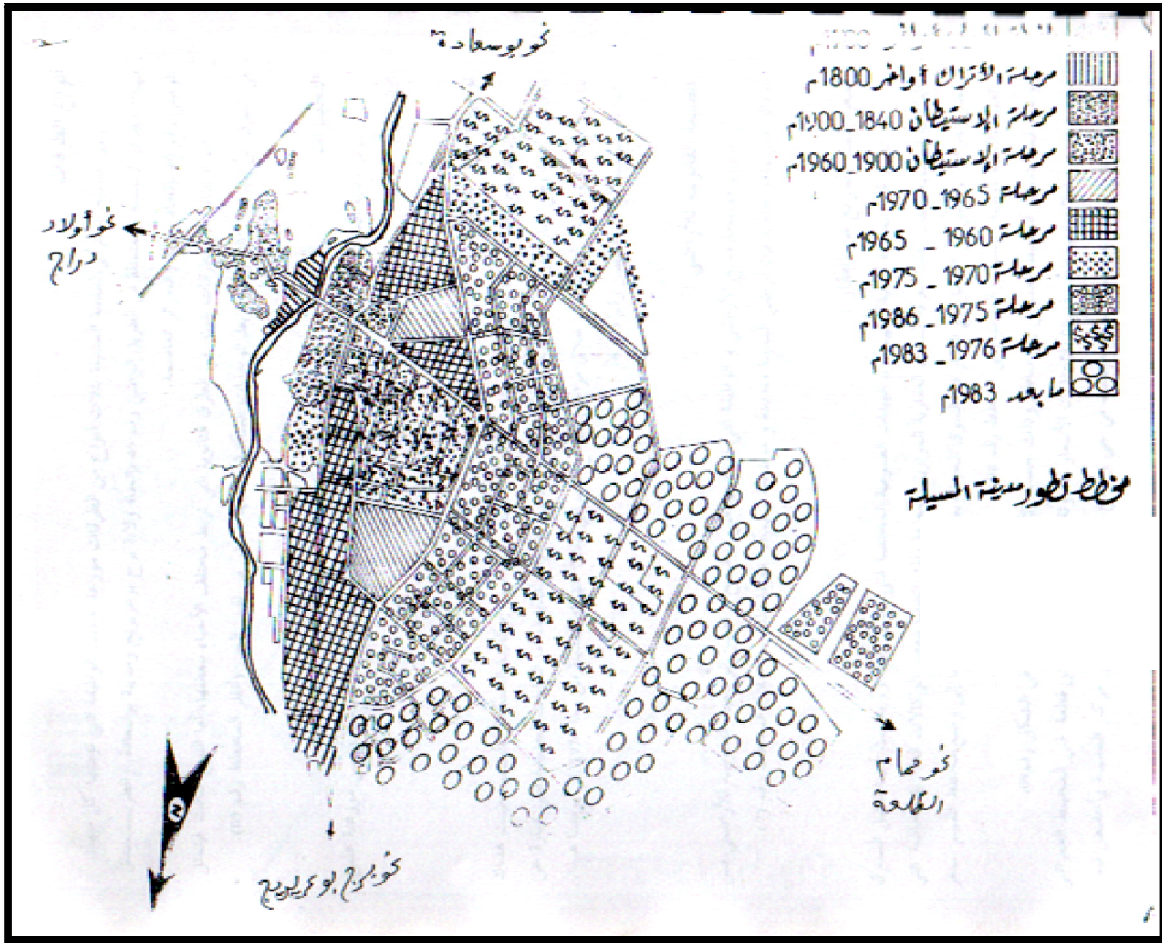 نحو بوسعادة
مرحلة الأتراك أواخر 1800م
مرحلة الإستيطان 1840_1900م
مرحلة الإستيطان 1900_1960م
مرحلة 1965_1970م
مرحلة 1960 _ 1965م
مرحلة 1970 _ 1975م
مرحلة 1975 _ 1986م
مرحلة 1976 _ 1983م
ما بعد 1983م
نحو أولاد
دراج
مخطط تطور مدينة المسيلة
نحو حمام
القلعة
نحو برج بوعريريج
N